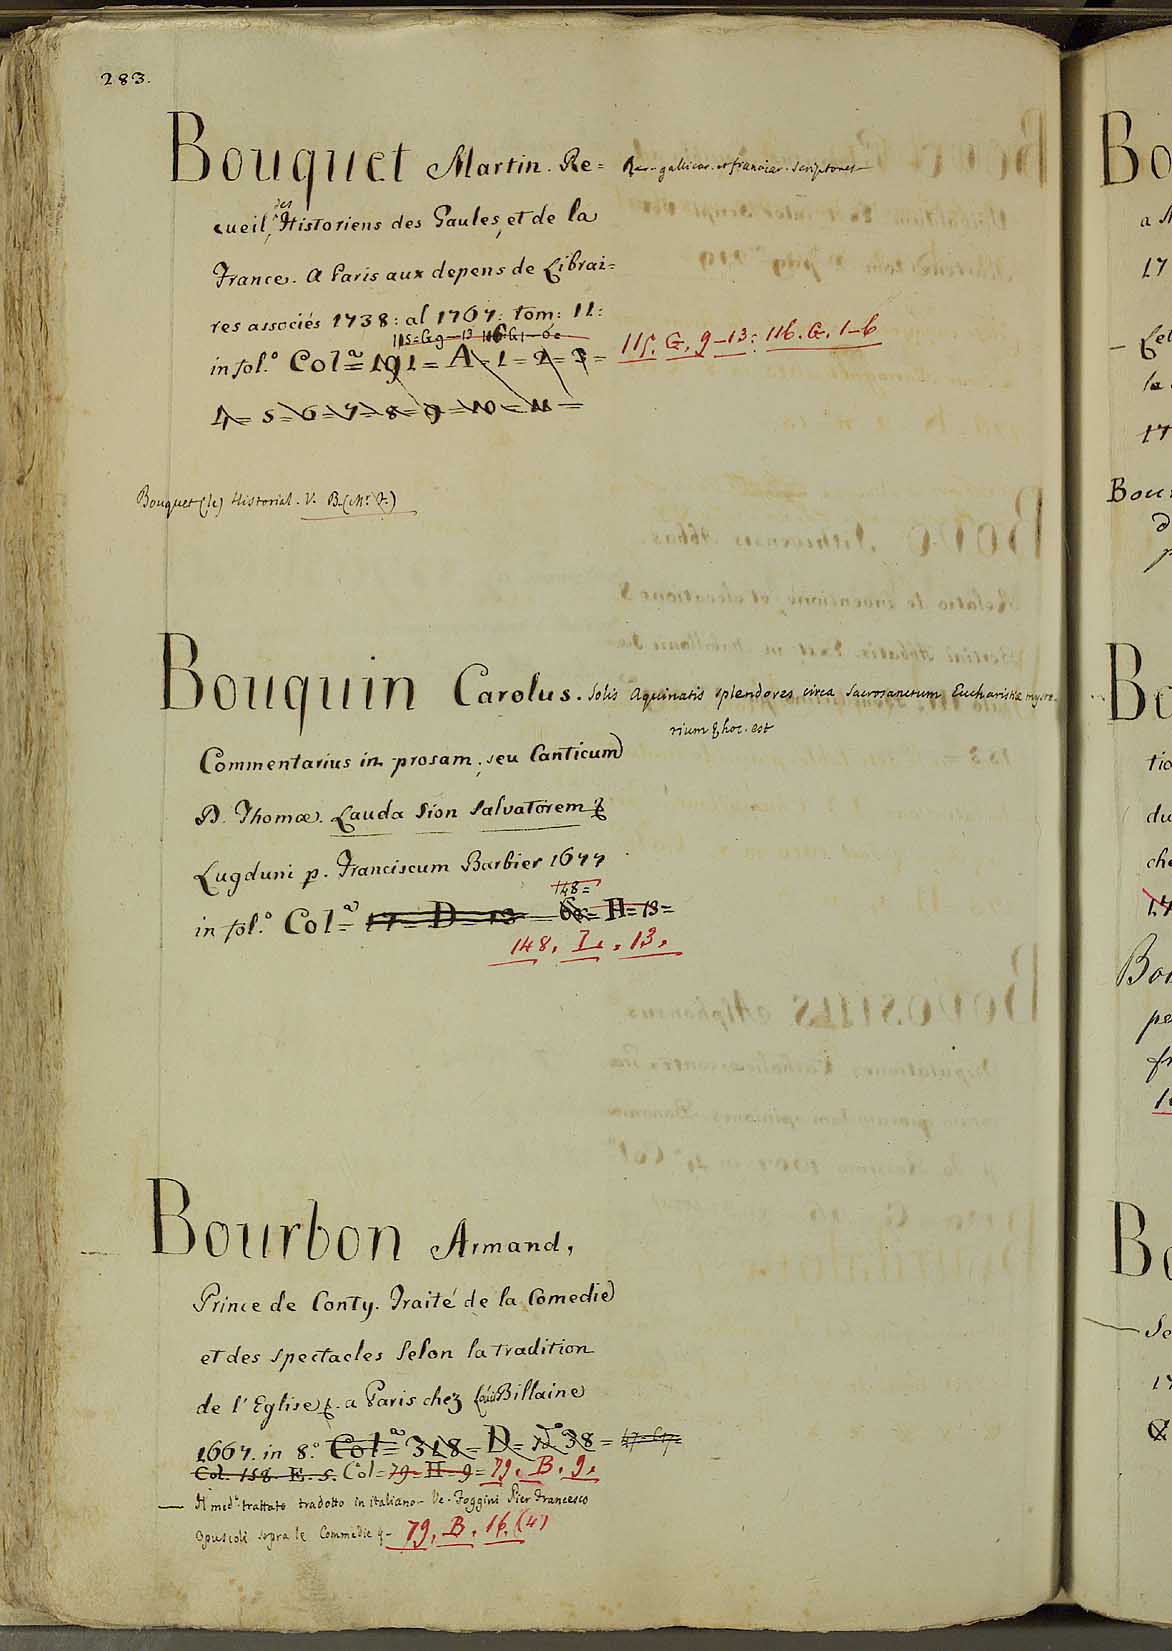 283.
Bouquet Martin. Re= Rer. gallicar. et franciar. scriptores
cueil, des Historiens des Gaules, et de la
France. A Paris aux depens de Librai=
res associés 1738: al 1767: tom: 11:
115=G.9-13 116.G.1-6=
in fol.º Col.ª= 191= A-1=2=3= 115. G. 9-13: 116. G. 1-6
4= 5=6=7=8=9=10=11=
Bouquet (le) Historial. V. B.
Bouquin Carolus. Solis Aquinatis splendores circa Sacrosanctum Eucharistiæ myste=
rium & hoc. est
Commentarius in prosam, seu Canticum
D. Thomæ. Lauda Sion Salvatorem &
Lugduni p. Franciscum Barbier 1677
148=
in fol.º Col.ª= 17= D= 13= H=13=
148. I. 13.
Bourbon Armand,
Prince de Conty. Traité de la Comedie
et des spectacles selon la tradition
de l'Eglise &. a Paris chez Louis Billaine
1667. in 8.º Col.ª= 318= D= 38=
Col. 158. E. 5. Col= 79= H= 9= 79. B. 9.
Il med.º trattato tradotto in italiano- Ve. Foggini Pier Francesco
Opuscoli sopra le Commedie &- 79. B. 16. (4)
Bo
a
17
la
17
Bo
tio
du
che
Bo
pe
fr
Bo
Se